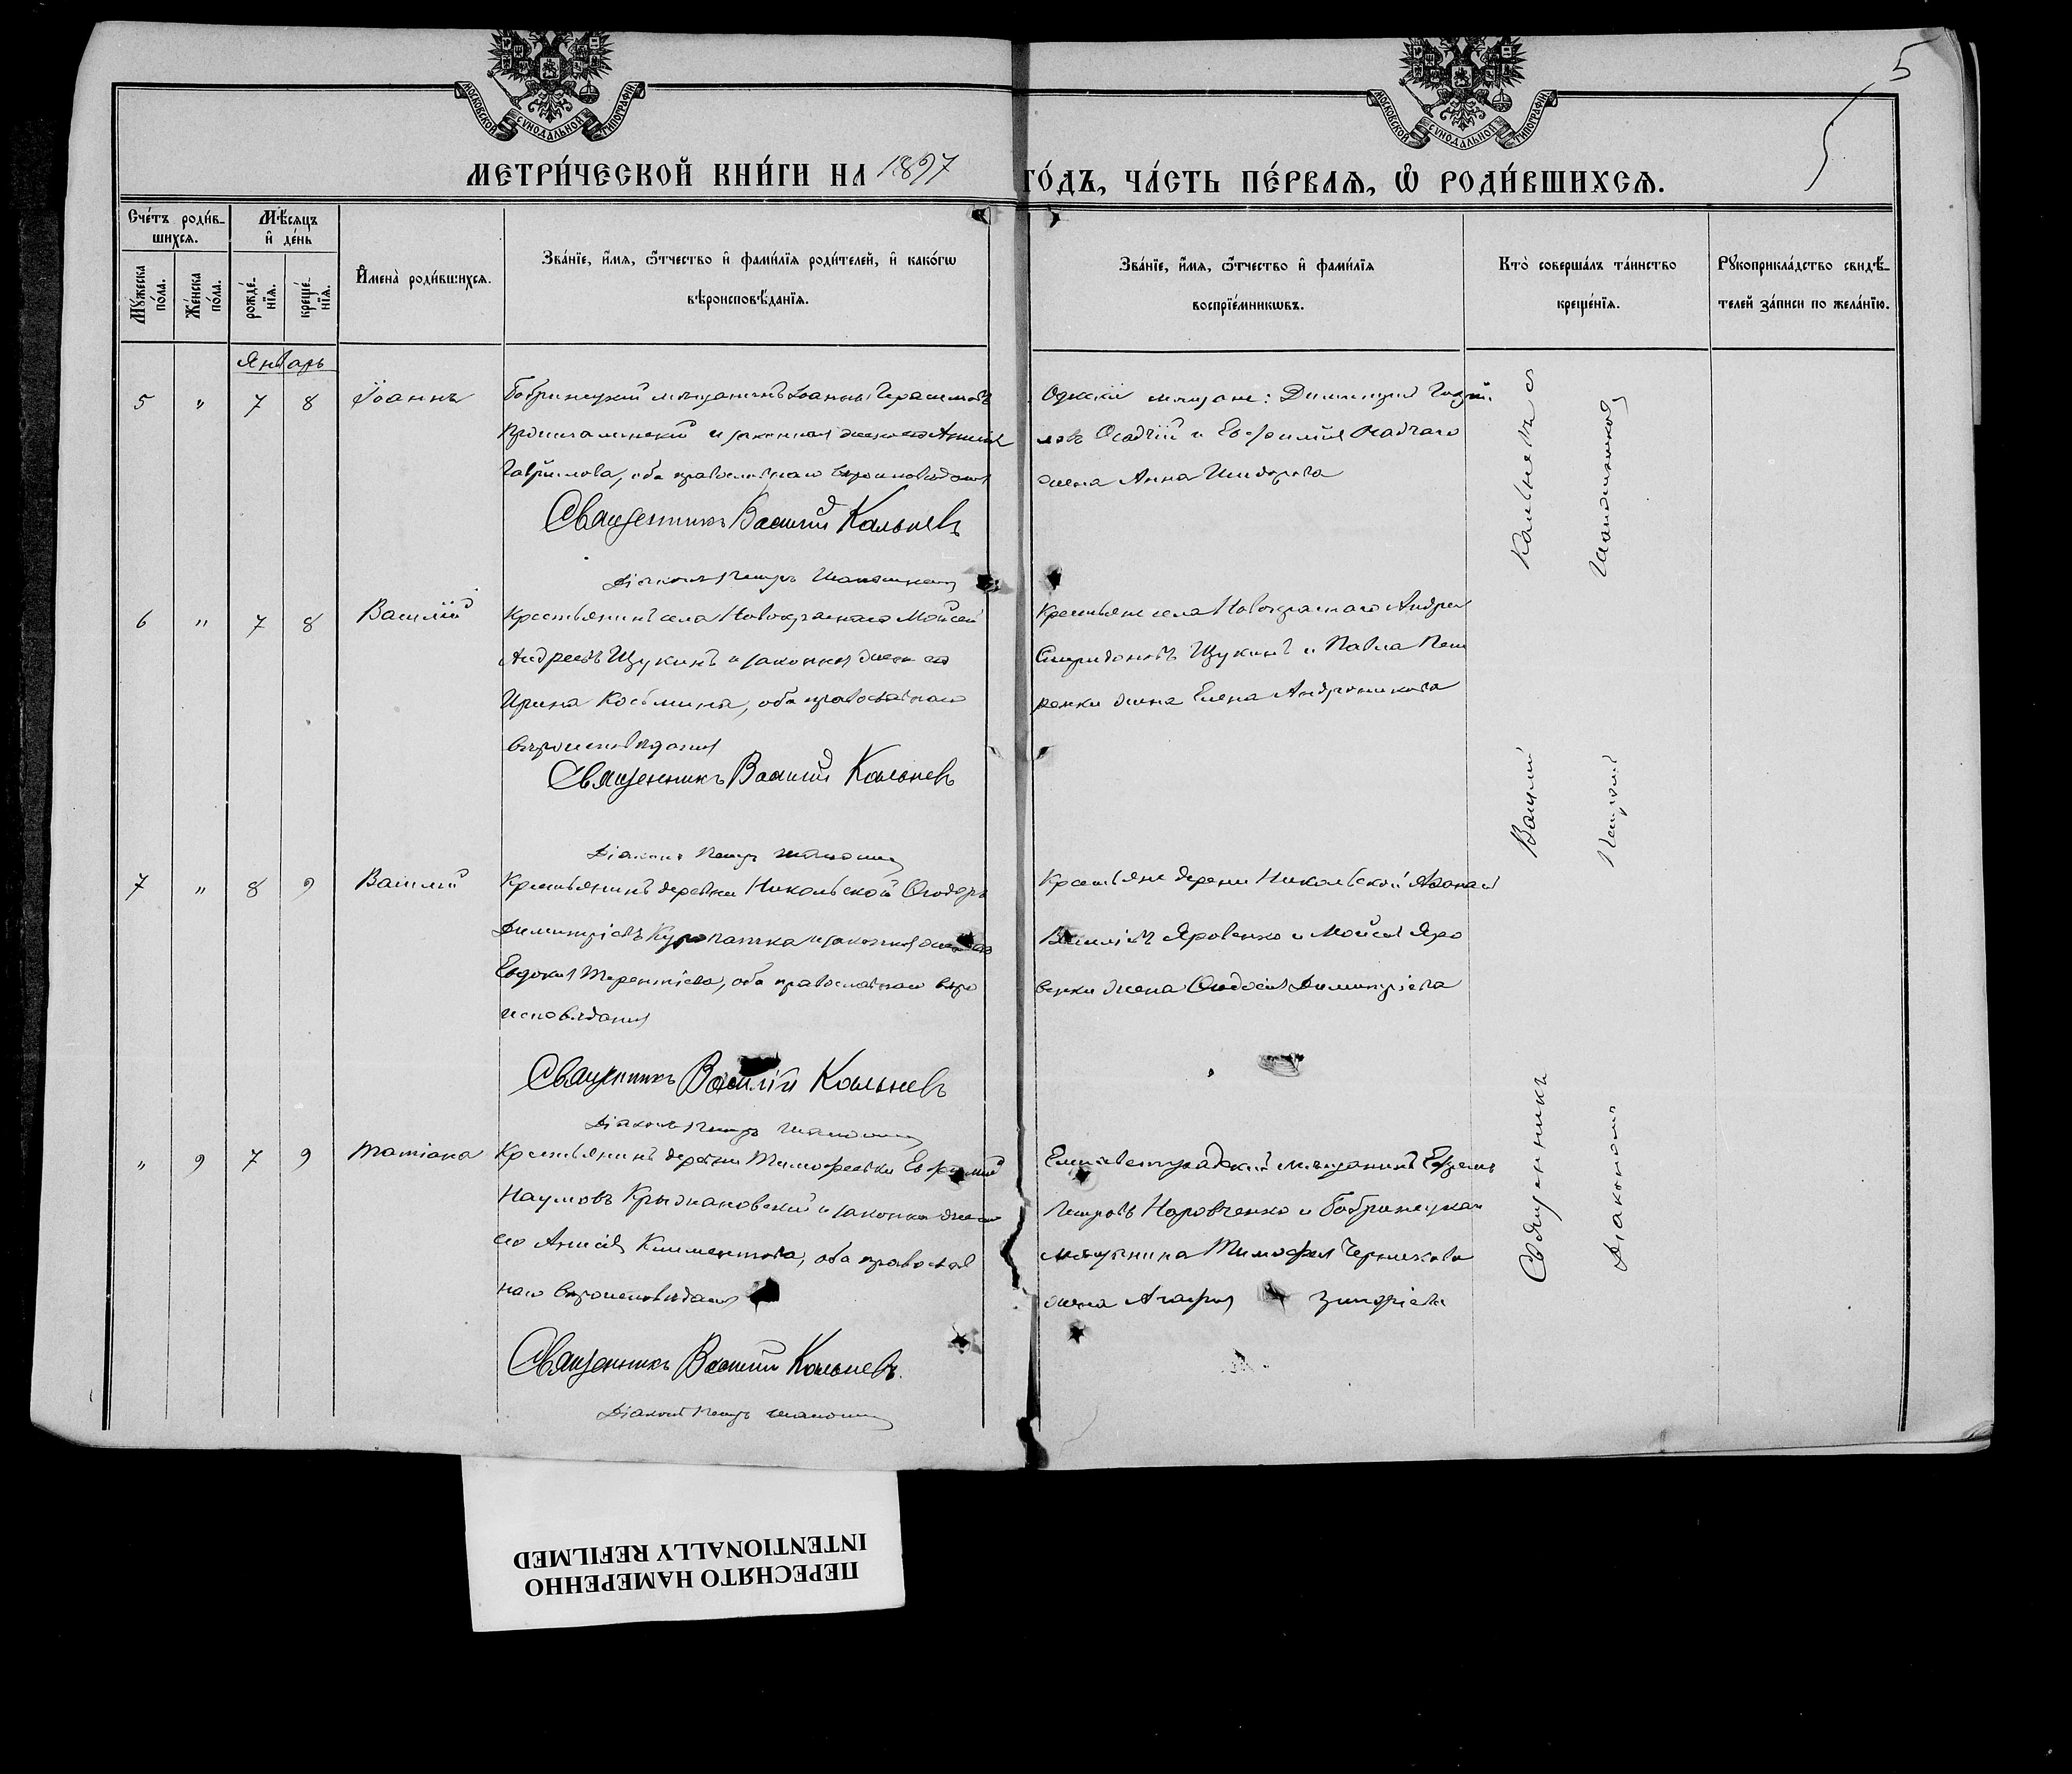 5
5
МОСКОВСКОЙ СѴНОДАЛЬНОЙ ТИПОГРАФІИ
МОСКОВСКОЙ СѴНОДАЛЬНОЙ ТИПОГРАФІИ
МЕТРИ́ЧЕСКОЙ КНИ́ГИ НА 1897 ГО́ДЪ, ЧА́СТЬ ПЕ́РВАѦ, Ѡ҆ РОДИ́ВШИХСѦ.
Сче́тъ роди́в-
шихсѧ.
Мꙋ́жеска по́ла.
Же́нска по́ла.
Мѣ́сѧцъ
и҆ де́нь
рожде́-
нїѧ.
креще́-
нїѧ.
И҆мена̀ роди́вшихсѧ.
Зва́нїе, и҆́мѧ, ѻ҆́тчество и҆ фами́лїѧ роди́телей, и҆ како́гѡ
вѣроисповѣ́данїѧ.
Зва́нїе, и҆́мѧ, ѻ҆́тчество и҆ фами́лїѧ
воспрїе́мникѡвъ.
Кто̀ соверша́лъ та́инство
креще́нїѧ.
Рꙋкоприкла́дство свидѣ́-
телей за́писи по жела́нїю.
Январь
5 " 7 8 Іоаннъ
Бобринецкій мѣщанинъ Іоаннъ Герасимовъ
и законная жена его Анисія
Гаврилова, оба православнаго вѣроисповѣданія
Священникъ Василій Кальневъ
Діаконъ Петръ
Одесскіе мѣщане: Димитрій
Осадчій и Осадчаго
жена Анна
6 " 7 8 Василій
Крестьянинъ села Новокраснаго Мойсей
Андреевъ Щукинъ и законная жена его
Ирина Косьмина, оба православнаго
вѣроисповѣданія
Священникъ Василій Кальневъ
Діаконъ Петръ
Крестьяне села Новокраснаго Андрей
Спиридоновъ Щукинъ и Павла Пет
ренки жена Елена Андроникова
7 " 8 9 Василій
Крестьянинъ деревни Никольской Ѳеодоръ
Димитріевъ Куропатка и законная жена его
Евдокія Терентіева, оба православнаго вѣро
исповѣданія
Священникъ Василій Кальневъ
Діаконъ Петръ
Крестьяне деревни Никольской Аѳанасій
Василіевъ Яровенко и Мойсея Яро
венки жена Ѳеодосія Димитріева
" 9 7 9 Татіана
Крестьянинъ деревни Тимофеевки Евфимій
Наумовъ Крыжановскій и законная жена
его Анисія Климентова, оба православ
наго вѣроисповѣданія
Священникъ Василій Кальневъ
Діаконъ Петръ
Елисаветградскій мѣщанинъ Ефремъ
Петровъ Норовченко и Бобринецкаго
мѣщанина Тимофея
жена Агафія
Священникъ Василій Кальневъ съ
Діакономъ Петромъ
ПЕРЕСНЯТО НАМЕРЕННО
INTENTIONALLY REFILMED